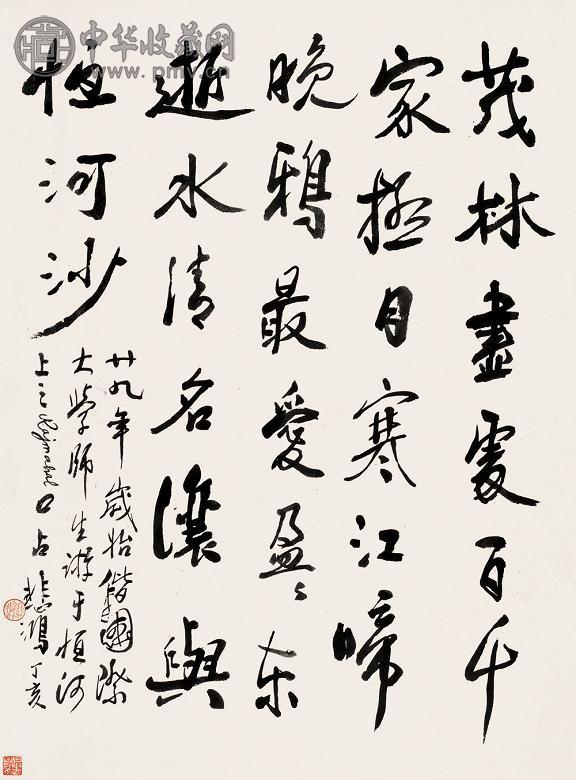 中华收藏网
www.pmv.cn
茂林盡處百千
家極目寒江啼
晚鴉最愛盈〻東
逝水清名讓與
恒河沙
廿九年歲始偕國際
大學師生游于恒河
上之Rajmahal口占
悲鴻 丁亥